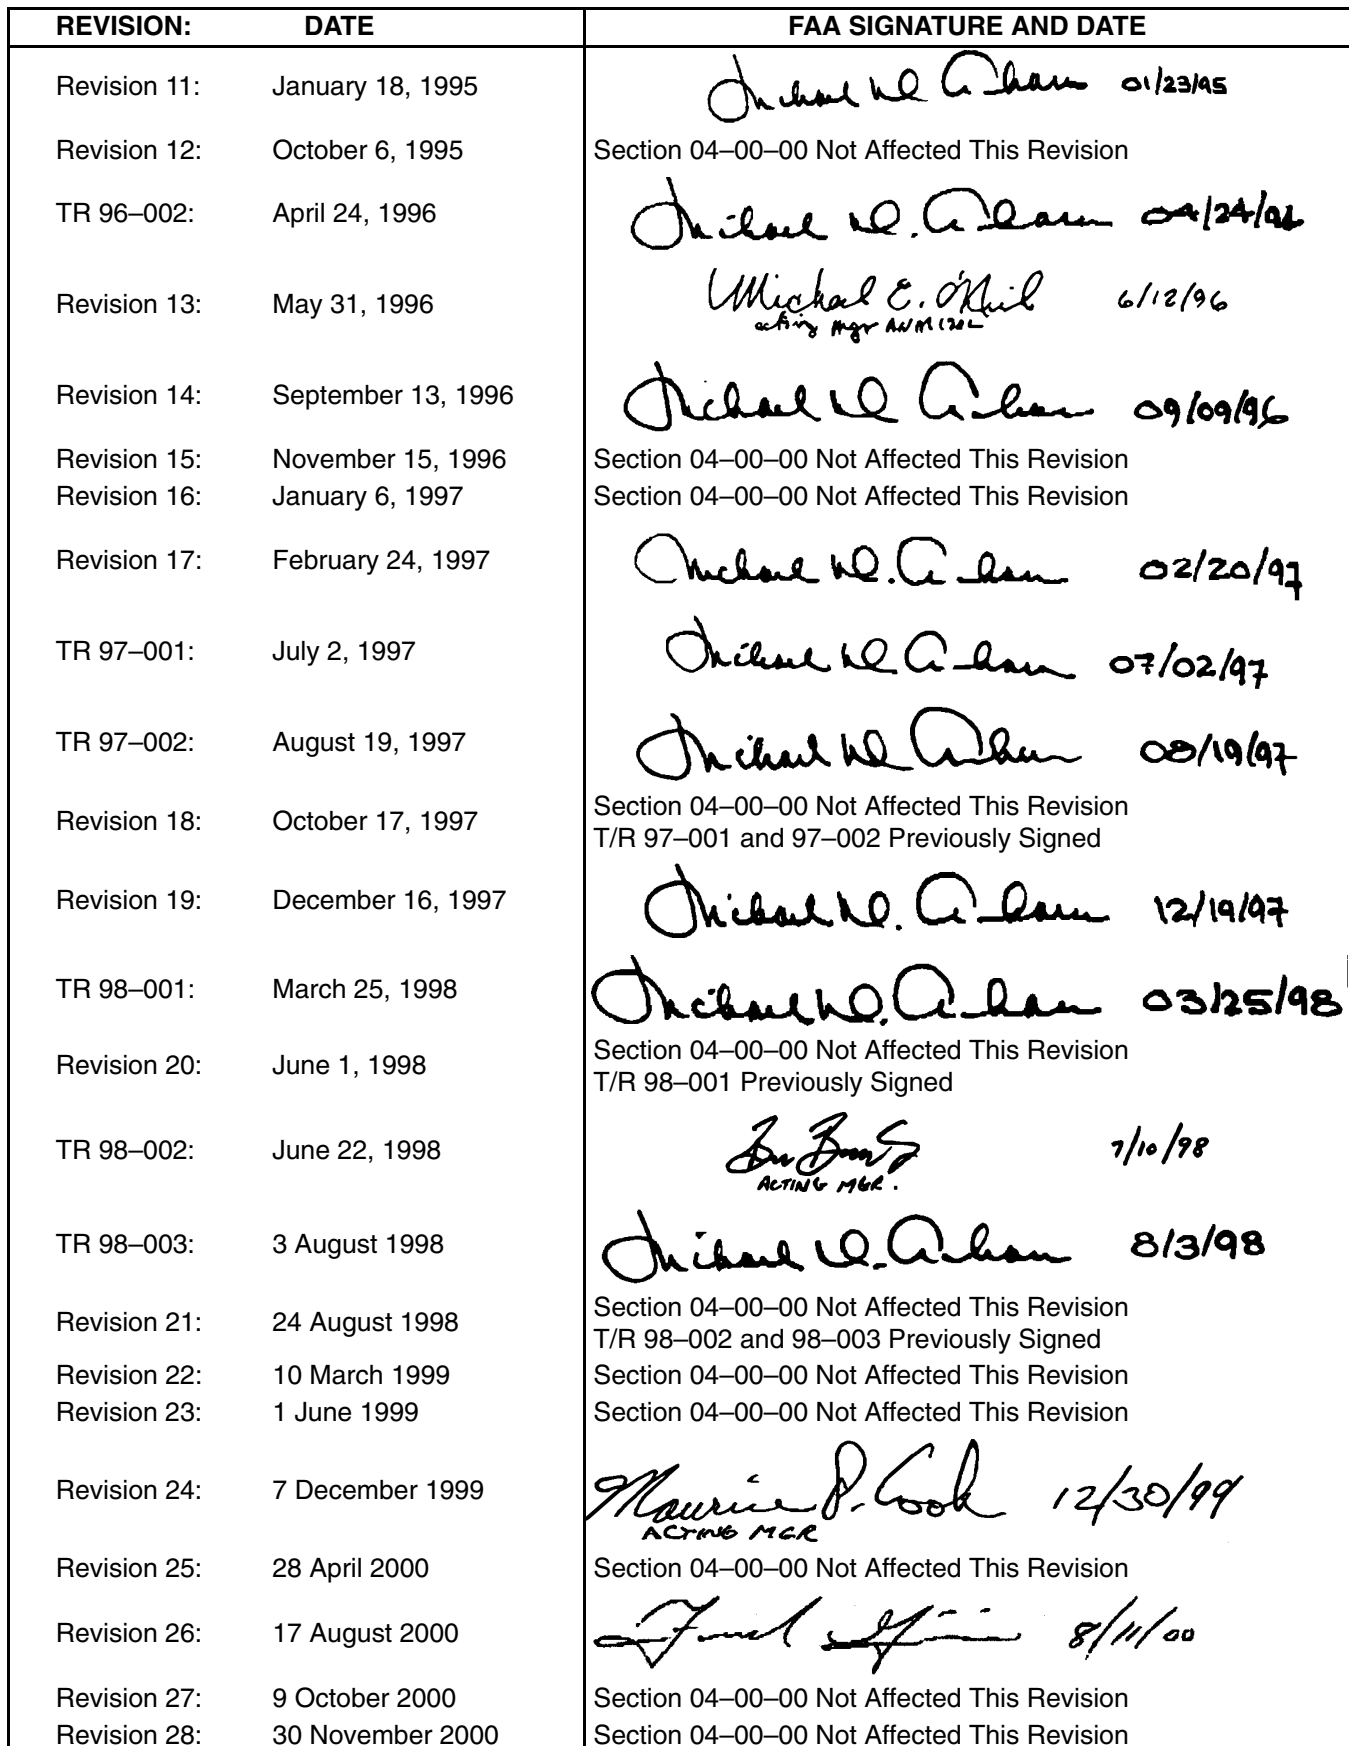 REVISION: DATE FAA SIGNATURE AND DATE
Revision 11: January 18, 1995 Michael 01/23/95
Revision 12: October 6, 1995 Section 04–00–00 Not Affected This Revision
TR 96–002: April 24, 1996 Michael 04/24/96
Revision 13: May 31, 1996 Michael E. O'Neil 6/12/96
acting Mgr ANM120L
Revision 14: September 13, 1996 Michael 09/09/96
Revision 15: November 15, 1996 Section 04–00–00 Not Affected This Revision
Revision 16: January 6, 1997 Section 04–00–00 Not Affected This Revision
Revision 17: February 24, 1997 Michael 02/20/97
TR 97–001: July 2, 1997 Michael 07/02/97
TR 97–002: August 19, 1997 Michael 08/19/97
Revision 18: October 17, 1997 Section 04–00–00 Not Affected This Revision
T/R 97–001 and 97–002 Previously Signed
Revision 19: December 16, 1997 Michael 12/19/97
TR 98–001: March 25, 1998 Michael 03/25/98
Revision 20: June 1, 1998 Section 04–00–00 Not Affected This Revision
T/R 98–001 Previously Signed
TR 98–002: June 22, 1998 7/10/98
ACTING MGR.
TR 98–003: 3 August 1998 Michael 8/3/98
Revision 21: 24 August 1998 Section 04–00–00 Not Affected This Revision
T/R 98–002 and 98–003 Previously Signed
Revision 22: 10 March 1999 Section 04–00–00 Not Affected This Revision
Revision 23: 1 June 1999 Section 04–00–00 Not Affected This Revision
Revision 24: 7 December 1999 Maurice P. Cook 12/30/99
ACTING MGR
Revision 25: 28 April 2000 Section 04–00–00 Not Affected This Revision
Revision 26: 17 August 2000 8/11/00
Revision 27: 9 October 2000 Section 04–00–00 Not Affected This Revision
Revision 28: 30 November 2000 Section 04–00–00 Not Affected This Revision